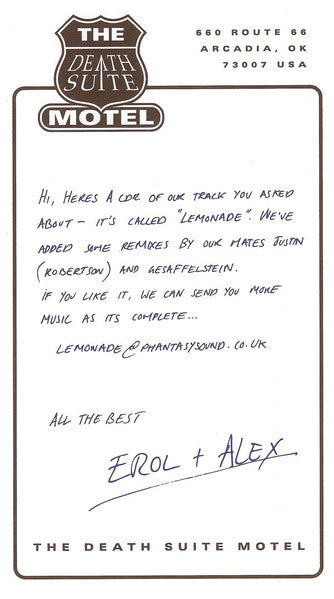 THE
DEATH
SUITE
MOTEL
660 ROUTE 66
ARCADIA, OK
73007 USA
HI, HERES A CDR OF OUR TRACK YOU ASKED
ABOUT - IT'S CALLED "LEMONADE". WE'VE
ADDED SOME REMIXES BY OUR MATES JUSTIN
(ROBERTSON) AND GESAFFELSTEIN.
IF YOU LIKE IT, WE CAN SEND YOU MORE
MUSIC AS ITS COMPLETE...
LEMONADE@PHANTASYSOUND.CO.UK
ALL THE BEST
EROL + ALEX
THE DEATH SUITE MOTEL